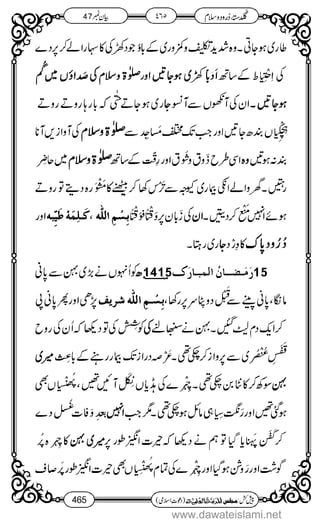 بیان نمبر 47 ٤٦٥ گلدستۂ دُرود و سلام
طاری ہوجاتی۔ وہ شدید تکلیف و کمزوری کے باوجود کھڑکی کا سہارا لے کر پردے
کی اِحتِیاط کے ساتھ با اَدَب کھڑی ہوجاتیں اور صلوٰۃ وسلام کی صَداؤں میں گُم
ہوجاتیں۔ ان کی آنکھوں سے آنسو جاری ہوجاتے حتّٰی کہ بارہا روتے روتے
ہچکیاں بندھ جاتیں اور جب تک مختلف مساجد سے صلوٰۃ وسلام کی آوازیں آنا
بند نہ ہوتیں وہ اسی طرح ذوق و شوق اور رِقّت کے ساتھ صلوٰۃ وسلام میں حاضِر
رہتیں۔ گھر والے انکی بیماری کی وجہ سے ترس کھا کر بیٹھنے کا مشورہ دیتے تو روتے
ہوئے انہیں مَنْع کردیتیں۔ ان کی زبان پر وَقْتاً فَوَقْتاً بِسْمِ اللہ، کَلِمَہ طَیِّبَہ اور
دُرُود پاک کا وِرْد جاری رہتا۔
15 رَمَضانُ المبارَک 1415ھ کو انہوں نے بڑی بہن سے پانی
مانگا، پانی پینے سے قَبْل دوپٹہ سر پر رکھا، بِسْمِ اللہ شریف پڑھی اور پھر پانی پی
کر ایک دم لیٹ گئیں۔ بہن نے سنبھالنے کی کوشش کی تو دیکھا کہ اُن کی روح
قَفَسِ عُنصُری سے پرواز کرچکی تھی۔ عَرْصۂ دراز تک بیمار رہنے کے باعِث میری
بہن سوکھ کر کانٹا بن چکی تھی۔ چہرے کی ہڈیاں نکل آئیں تھیں، پُھنسیاں بھی
ہوگئیں تھیں اور رنگ سیاہی مائل ہوچکا تھا، مگر جب انہیں بعدِ وفات غسل دے
کر کفن پہنایا گیا تو ہم نے دیکھا کہ حیرت انگیز طور پر میری بہن کا چہرہ پُر
گوشت اور روشن ہوگیا اور چہرے کی تمام پُھنسیاں بھی حیرت انگیز طور پر صاف
465 پیش کش: مجلس المدینۃ العلمیۃ (دعوتِ اسلامی)
www.dawateislami.net